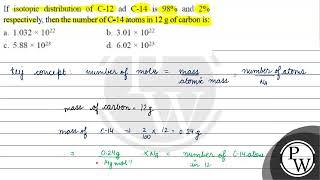 If isotopic distribution of C-12 ad C-14 is 98% and 2%
respectively, then the number of C-14 atoms in 12 g of carbon is:
a. 1.032 × 10²² b. 3.01 × 10²²
c. 5.88 × 10²³ d. 6.02 × 10²³
key concept: number of mole = mass / atomic mass = number of atoms / NA
mass of carbon = 12g
mass of C-14 → 2/100 × 12 = 0.24 g
= 0.24g / mol⁻¹ × NA = number of C-14 atoms
in 12
PW